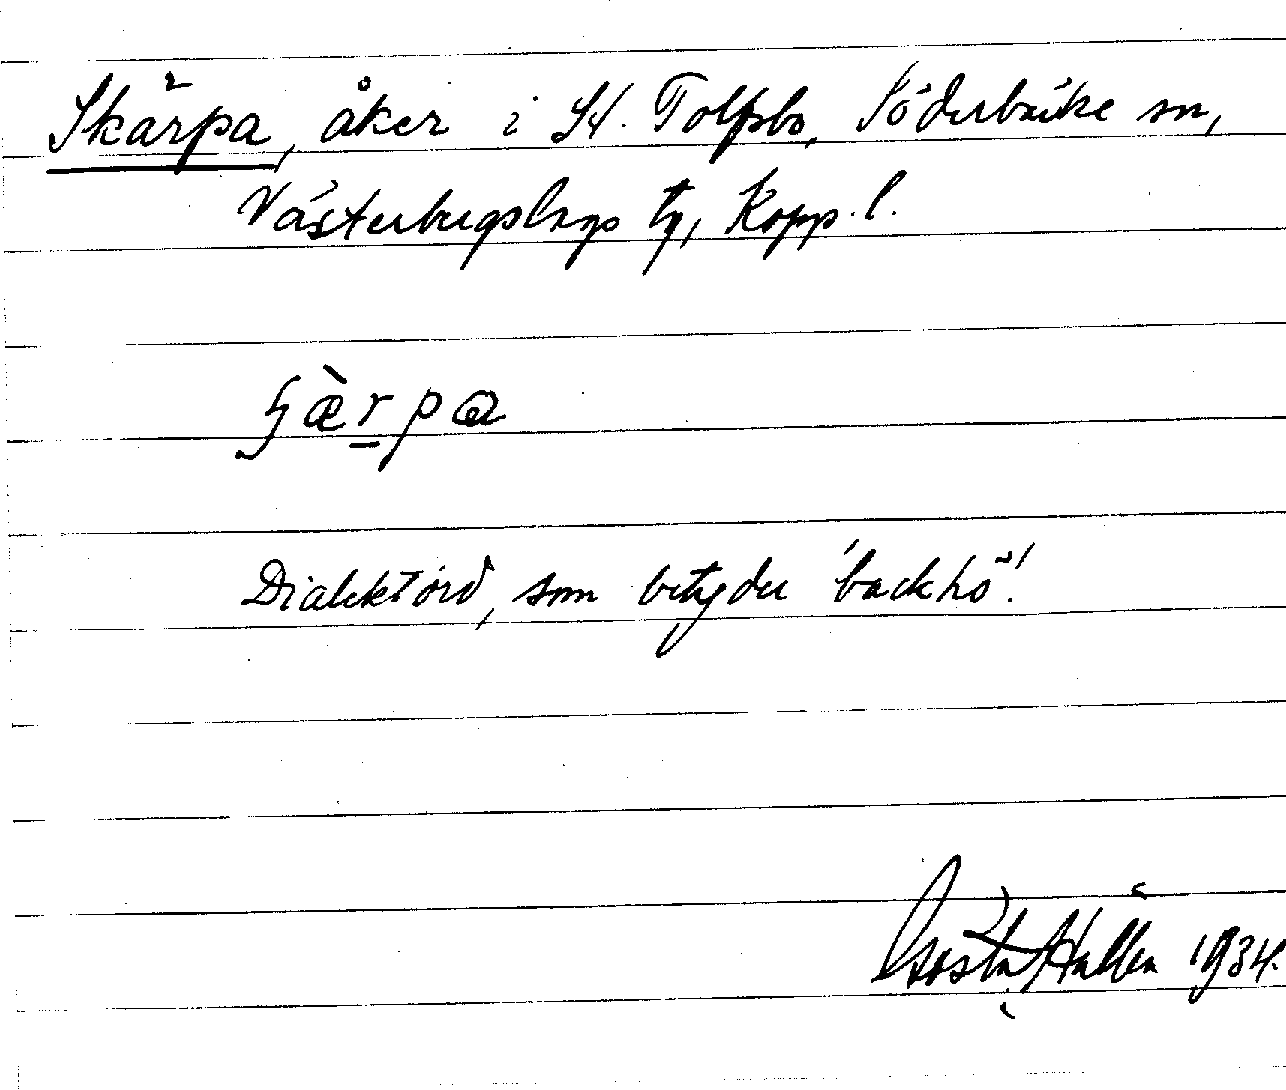 Skärpa, åker i St. Tolfsbo, Söderbärke sn,
Västerbergslags tg, Kopp. l.
ʃæ̀r̠pa
Dialektord, som betyder 'backhö'.
Gösta Hallén 1934.